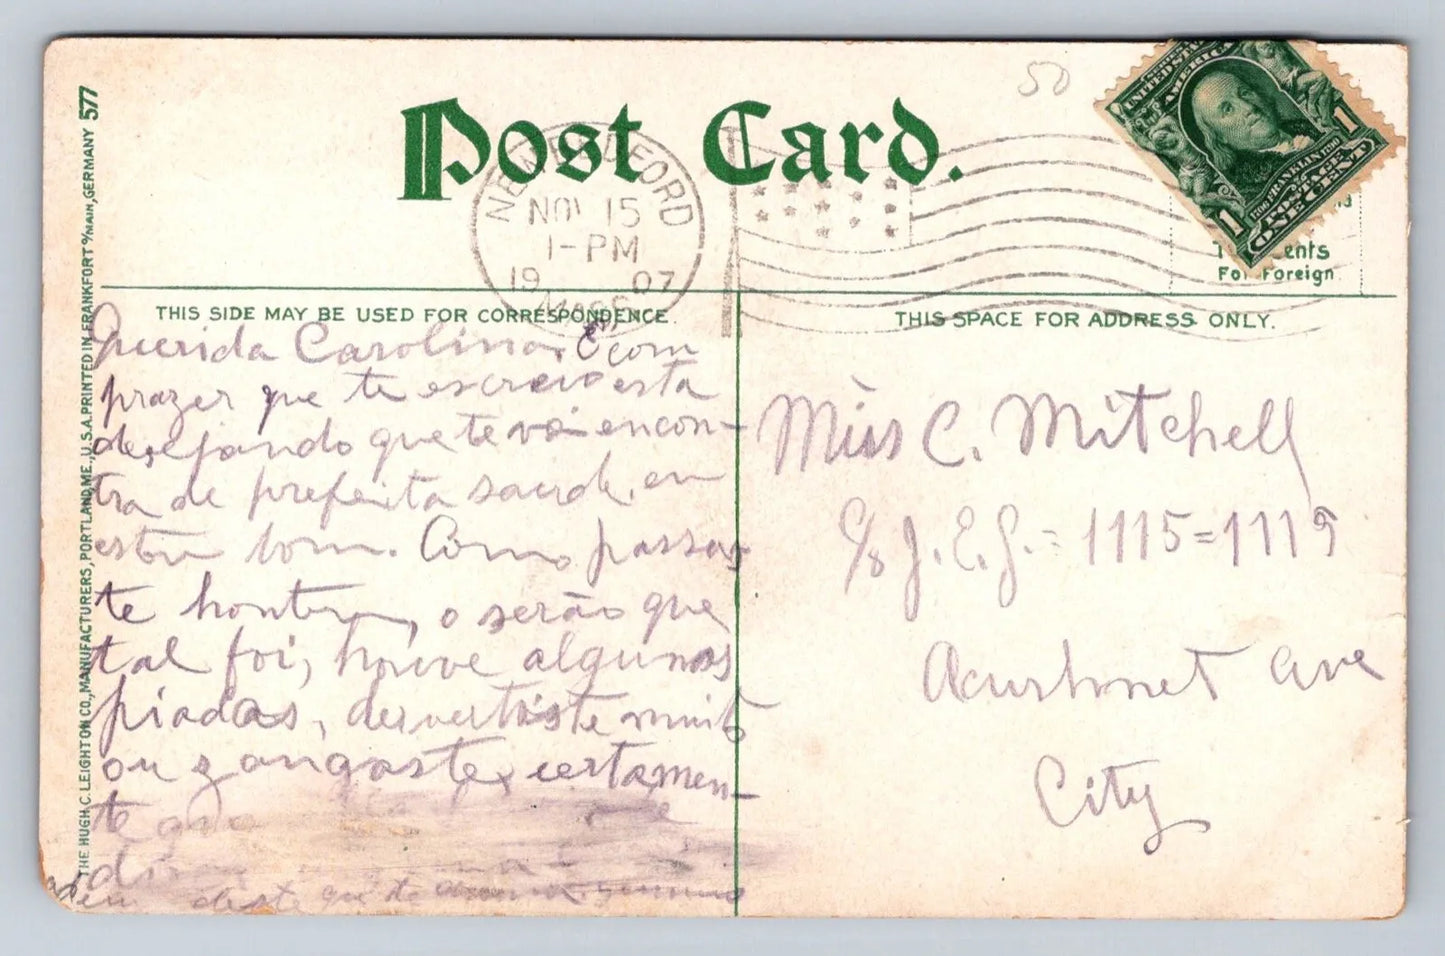 Post Card.
NEW BEDFORD
NOV 15
1-PM
1907
MASS.
50
UNITED STATES
AMERICA
1
1
FRANKLIN
POSTAGE
ONE CENT
ents
For Foreign
THE HUGH C. LEIGHTON CO., MANUFACTURERS, PORTLAND, ME., U.S.A. PRINTED IN FRANKFORT o/MAIN, GERMANY 577
THIS SIDE MAY BE USED FOR CORRESPONDENCE.
Querida Carolina, É com
prazer que te escrevo esta
desejando que te vá encon-
tra de prefeita saude, eu
estou bom. Como passas-
te hontem, o serão que
tal foi, houve algumas
piadas, devertiste muito
ou zangaste, certamen-
te que
deste que te
THIS SPACE FOR ADDRESS ONLY.
Miss C. Mitchell
c/o J. E. G. = 1115=1119
Acushnet Ave
City